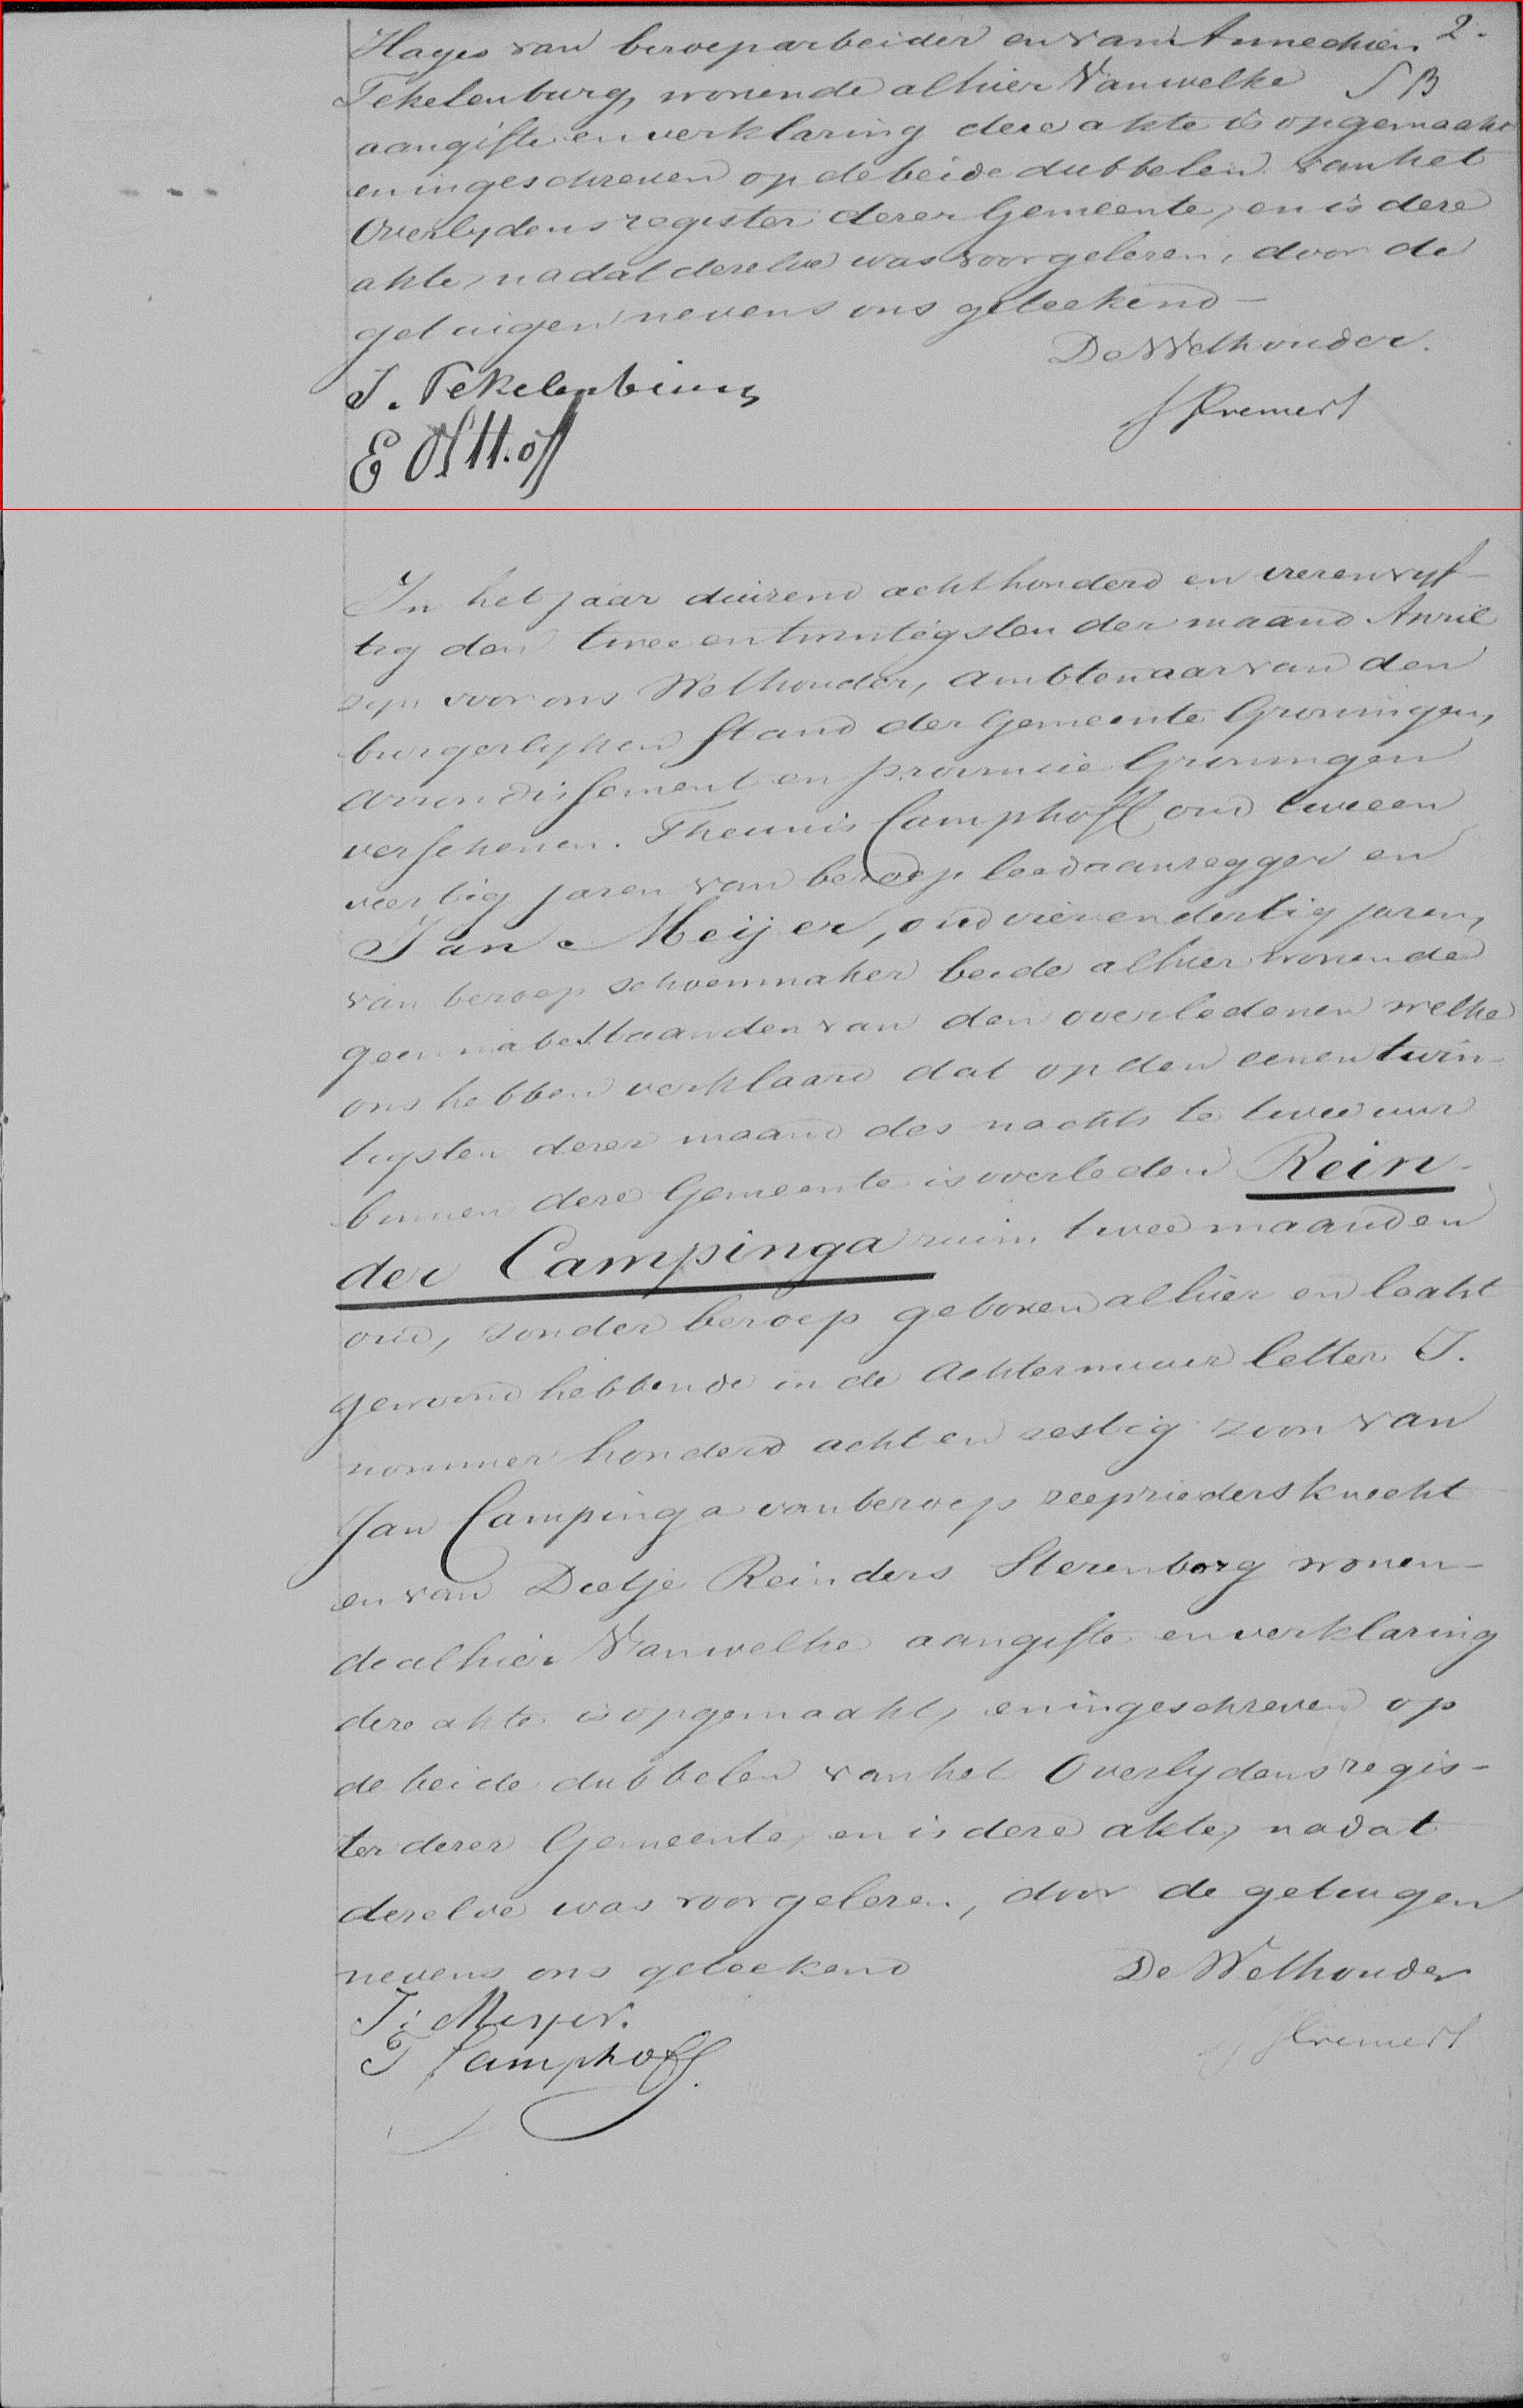 Hayes van beroep arbeider en van Annechien 2.
Tekelenburg, wonende alhier Van welke SB
aangifte en verklaring deze akte is opgemaakt
en ingeschreven op de beide dubbelen van het
Overlydens register dezer Gemeente, en is deze
akte, nadat dezelve was voorgelezen, door de
getuigen nevens ons geteekend —
De Wethouder.
J. Tekelenburg
E Olthoff
In het jaar duizend achthonderd en vierenvyf-
tig den tweeentwintigsten der maand April
zyn voor ons Wethouder, Ambtenaar van den
burgerlyken Stand der Gemeente Groningen,
Arrondissement en provincie Groningen
verschenen. Theunis Camphoff oud tweeen
veertig jaren van beroep leedaanzegger en
Jan Meijer, oud vierendertig jaren,
van beroep schoenmaker beide alhier wonende
geen nabestaanden van den overledenen welke
ons hebben verklaard dat op den eenentwin-
tigsten dezer maand des nachts te twee uur
binnen deze Gemeente is overleden Rein-
der Campinga ruim twee maanden
oud, zonder beroep geboren alhier en laatst
gewoond hebbende in de Achtermuur letter T.
nommer honderd achten zestig zoon van
Jan Campinga van beroep zeepzieders knecht
en van Deetje Reinders Sterenborg wonen-
de alhier Van welke aangifte en verklaring
deze akte is opgemaakt, en ingeschreven op
de beide dubbelen van het Overlydens regis-
ter dezer Gemeente, en is deze akte, nadat
dezelve was voorgelezen, door de getuigen
nevens ons geteekend De Wethouder
J: Meyer.
T Camphoff.